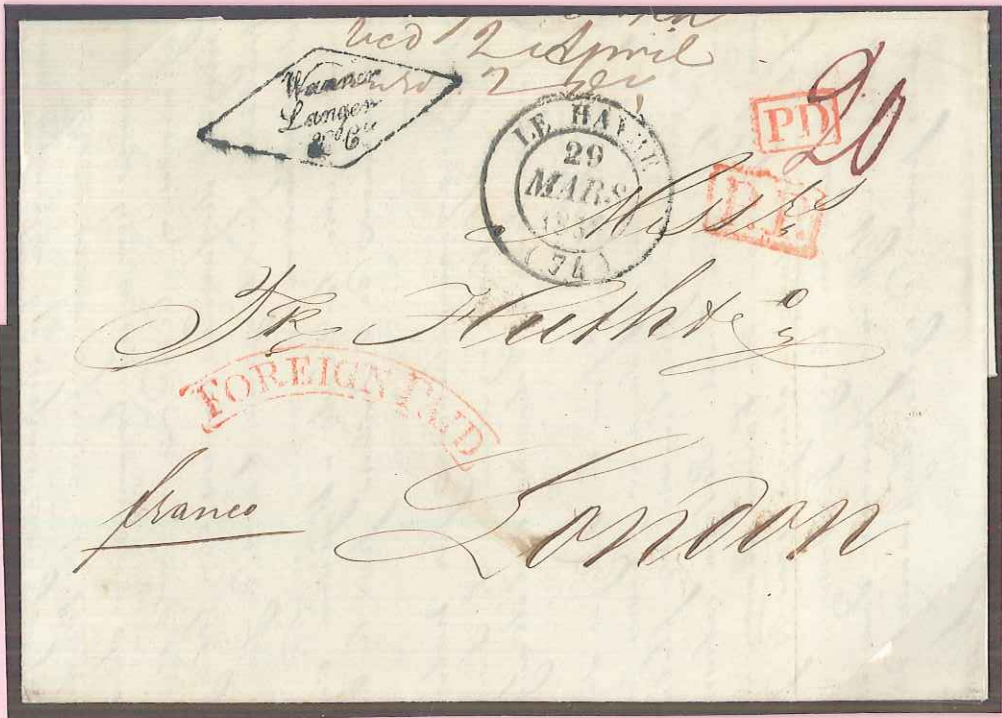 recd 2 April
Wanner
Langer
& Cie
LE HAVRE
29
MARS
(74)
PD
20
P.P.
Messrs
Fk Huth & Co
FOREIGN PAID
franco
London